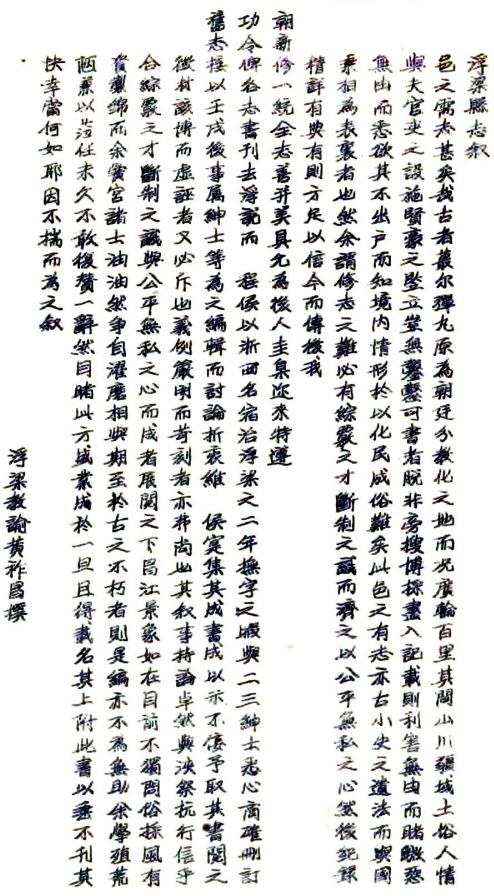 浮梁縣志叙
邑之需志甚矣哉古者蕞尔彈丸原為朝廷分教化之地而况廣輪百里其間山川疆域土俗人情
與夫官吏之設施賢豪之監立豈無鑿鑿可書者脱非旁搜博採盡入記載則利害無由而睹徽慝
無由而悉欲其不出户而知境内情形於以化民成俗難矣此邑之有志亦古小史之遺法而與國
乘相為表裏者也然余謂修志之難必有綜覈之才斷制之識而濟之以公平無私之心然後紀錄
精詳有典有則方足以信今而傳後我
朝新修一統全志善并美具允為後人圭臬迩来特遵
功令俾各志書刊去浮說而 程侯以浙西名宿治浮梁之二年撫字之暇與二三紳士悉心商確刪訂
舊志揆以壬戌後事属紳士等為之編輯而討論折衷維 侯寔集其成書成以示不佞予取其書閲之
徵材該博而虚誣者又必斥也義例嚴明而苛刻者亦弗尚也其叙事持論卓然與泱祭抗行信乎
合綜覈之才斷制之識與公平無私之心而成者展閲之下昌江景象如在目前不獨問俗採風有
資製錦而余黌宫諸士油油然争自濯磨相與期至於古之不朽者則是編亦不為無助余學殖荒
陋兼以蒞任未久不敢後贊一辭然目睹此方盛業成於一旦且得載名其上附此書以垂不刊其
快幸當何如耶因不揣而為之叙
浮梁教諭黄祚昌撰